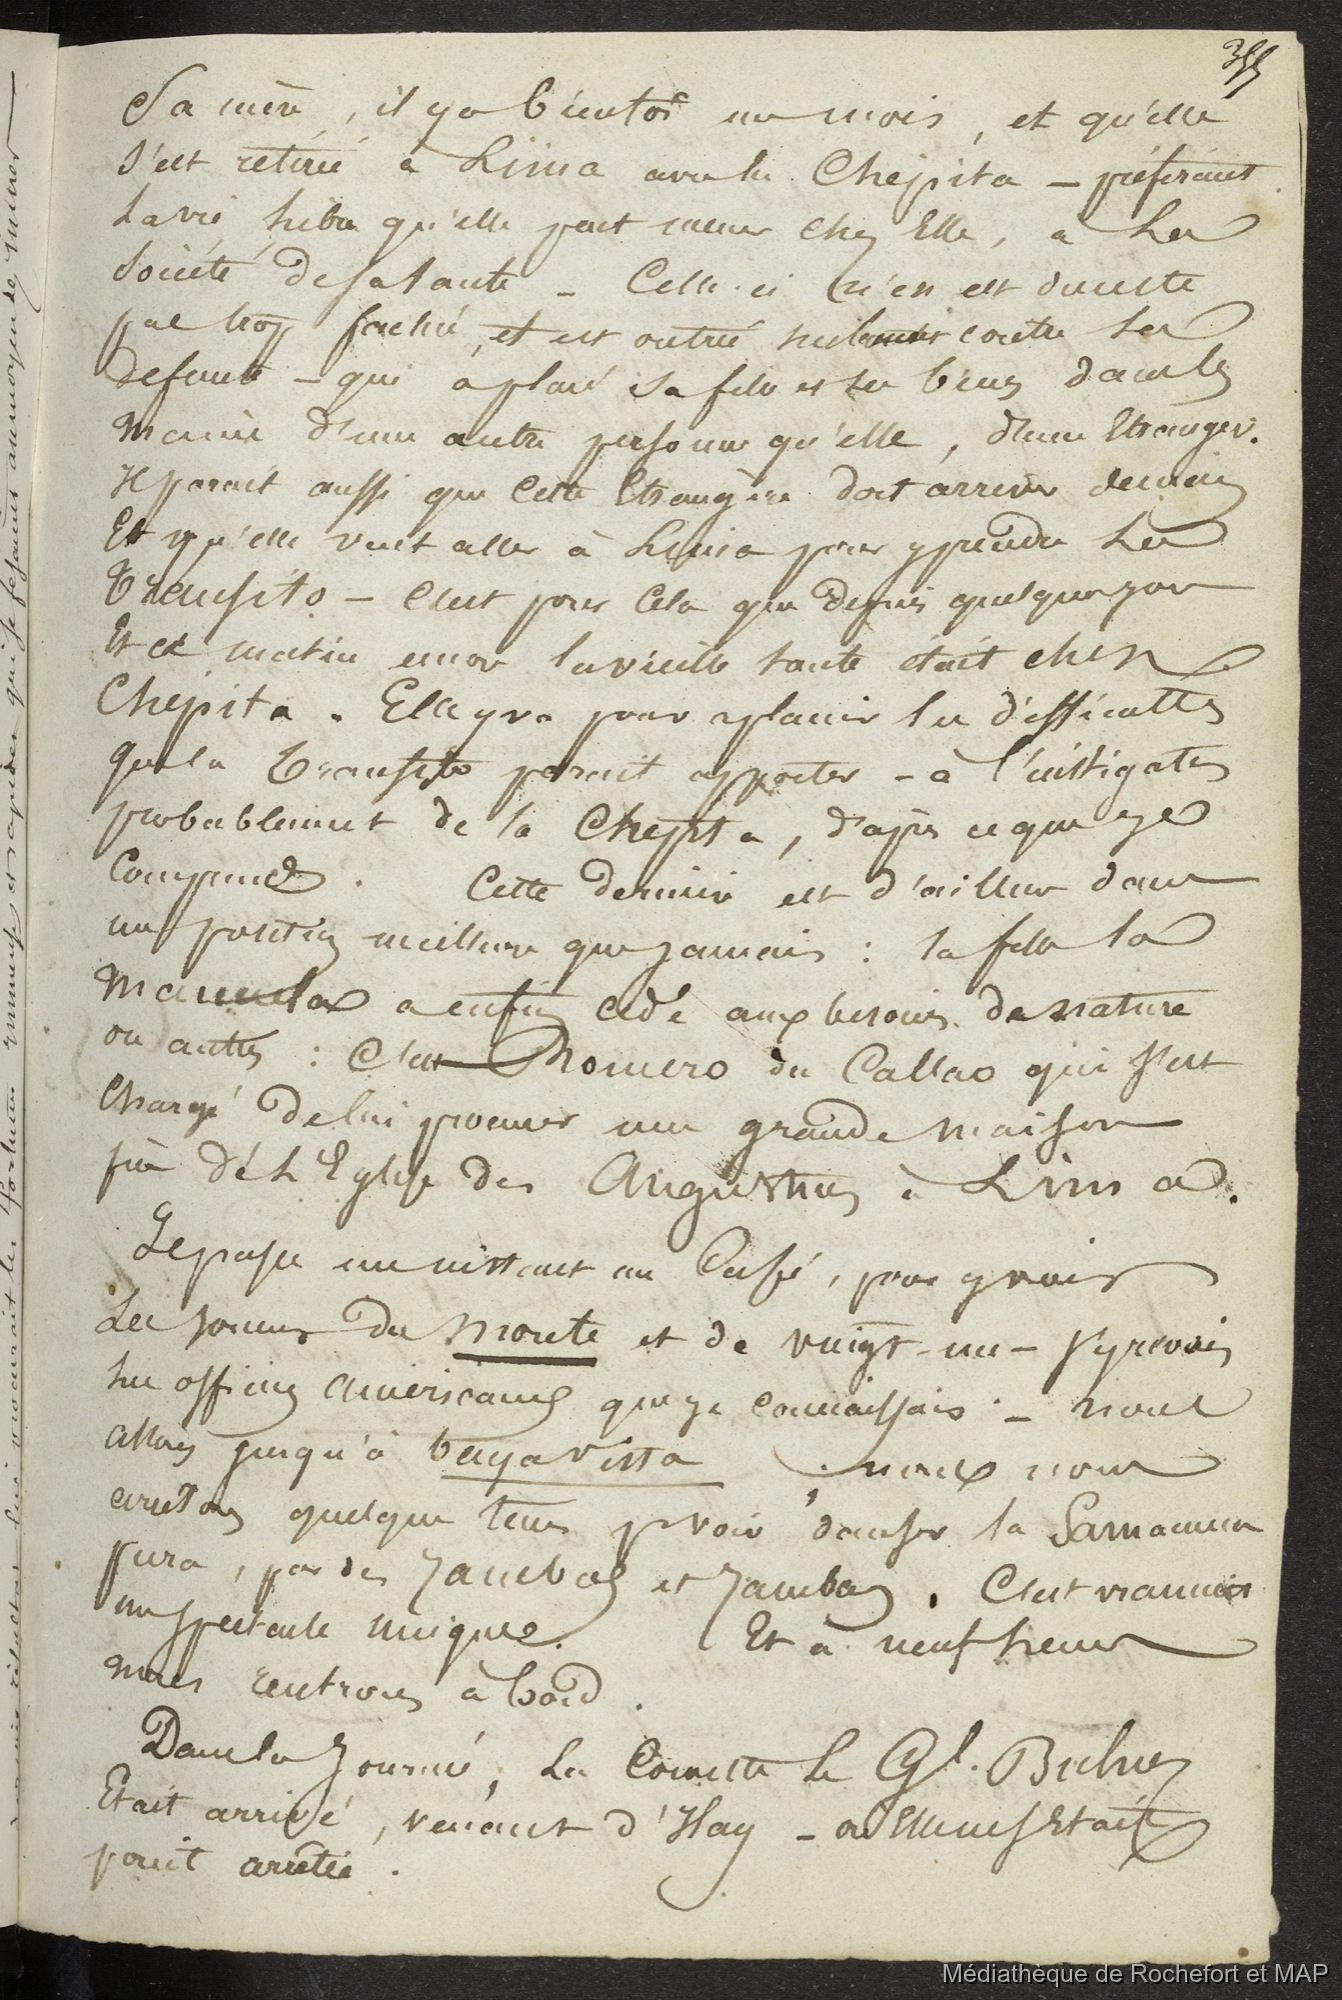 355
Sa mère, il y a bientot un mois, et qu'elle
s'est retirée à Lima avec la Chepita – préférant
la vie libre qu'elle peut mener chez Elle, à la
Société de sa tante – Celle-ci n'en est du reste
pas trop fachée, et est outrée seulement contre la
defunte – qui a placé sa fille et ses biens dans les
mains d'une autre personne qu'elle, d'une Etrangère.
Il parait aussi que cette Etrangère doit arriver demain
Et qu'elle veut aller à Lima pour y prendre la
Transito – C'est pour cela que depuis quelques jours
Et ce matin encore la vieille tante était chez
Chepita. Elle y va pour aplanir les difficultés
que la Transito parait apporter – à l'instigation
probablement de la Chepita, d'après ce que je
Comprends. Cette dernière est d'ailleurs dans
une position meilleure que jamais : sa fille la
Manuela a enfin cédé aux besoins de nature
ou autres : C'est Romero du Callao qui s'est
Chargé de lui procurer une grande maison
près de L'Eglise des Augustins à Lima.
Je passe un instant au Café, pour y voir
les joueurs du monte et de vingt-un – J'y revois
les officiers américains que je connaissais – nous
allons jusqu'à buyavista ; nous nous
arretons quelque tems p. voir danser la Samacueca
pura, par des Zambos et Zambas. C'est vraiment
un spectacle unique. Et à neuf heures
nous rentrons à bord.
Dans la Journée, la Corvette le Gl.
Etait arrivée, venant d'Ilay – où elle s'Etait
point arretée.
Médiathèque de Rochefort et MAP